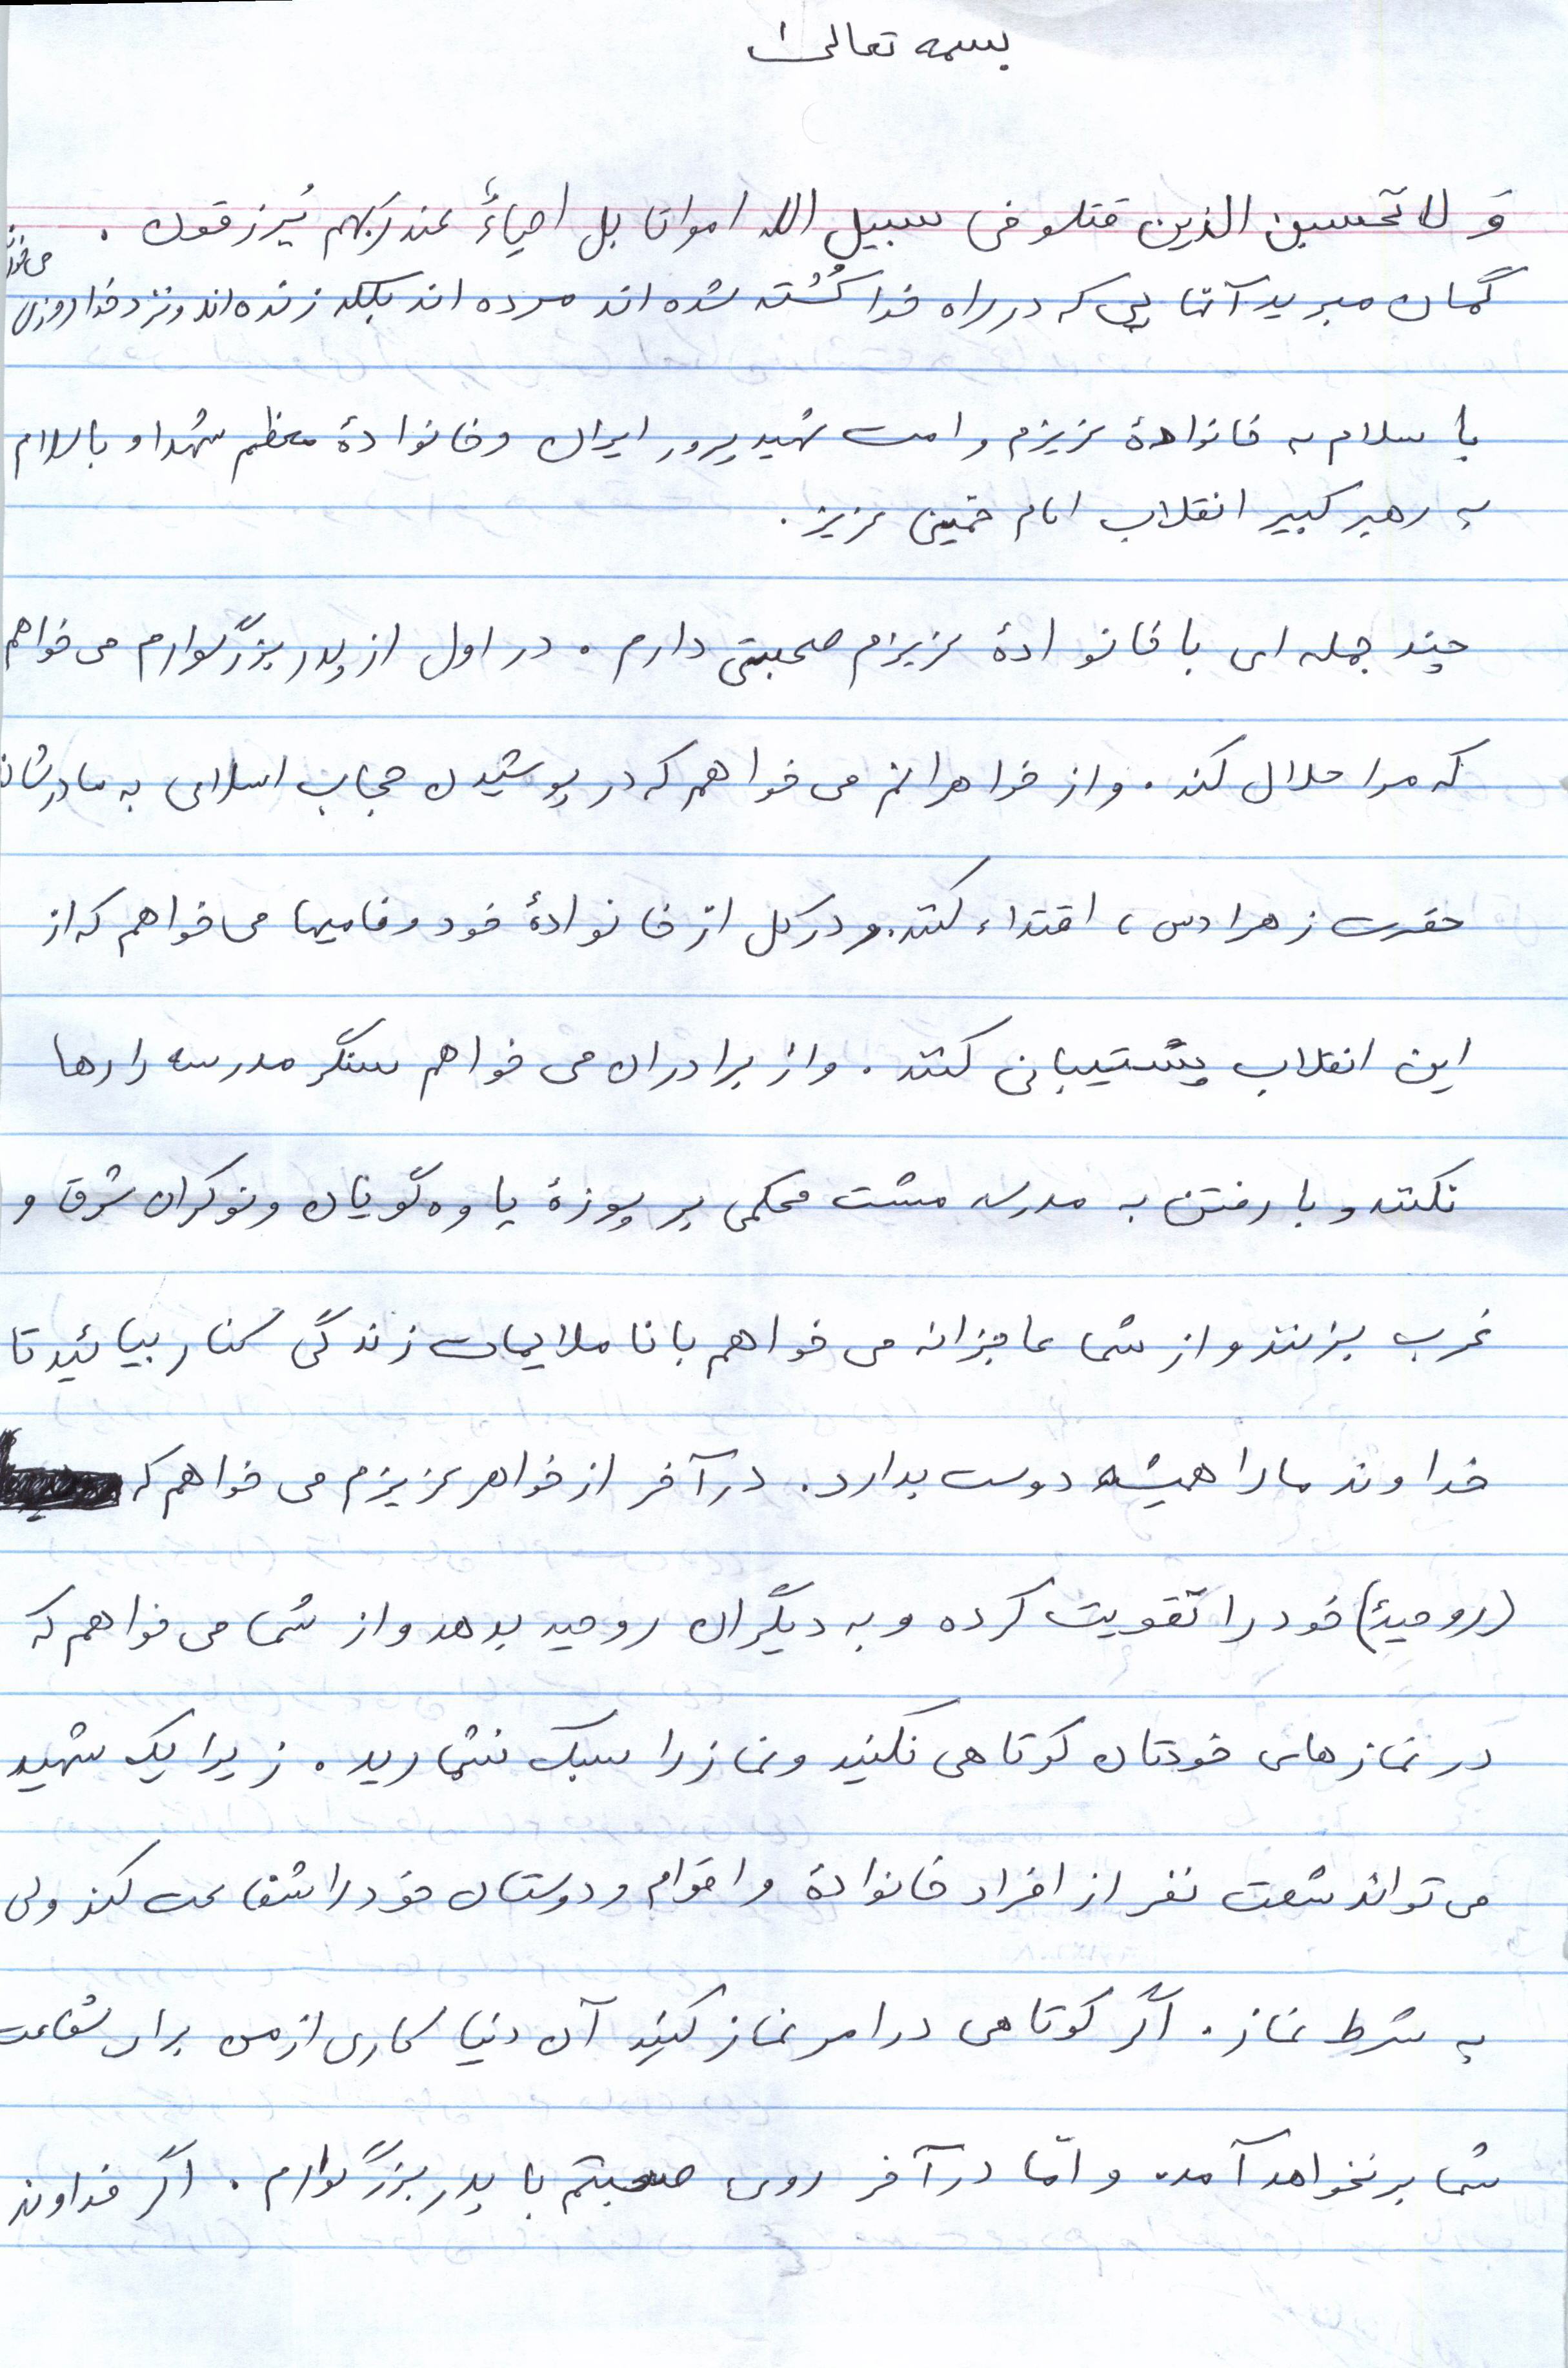 بسمه تعالی
وَ لا تحسبن الذین قتلو فی سبیل الله امواتا بل احیاءٌ عند ربهم یُرزقون .
گمان مبرید آنهایی که در راه خدا کُشته شده اند مرده اند بلکه زنده اند و نزد خدا روزی می خورند
با سلام به خانوادهٔ عزیزم و امت شهید پرور ایران و خانوادهٔ معظم شهدا و با سلام
به رهبر کبیر انقلاب امام خمینی عزیز .
چند جمله ای با خانوادهٔ عزیزم صحبتی دارم . در اول از پدر بزرگوارم می خواهم
که مرا حلال کند . و از خواهرانم می خواهم که در پوشیدن حجاب اسلامی به مادرشان
حضرت زهرا «س» اقتداء کنند . و در کل از خانوادهٔ خود و فامیها می خواهم که از
این انقلاب پشتیبانی کنند . و از برادران می خواهم سنگر مدرسه را رها
نکنند و با رفتن به مدرسه مشت محکمی بر پوزهٔ یاوه گویان و نوکران شرق و
غرب بزنند و از شما عاجزانه می خواهم با ناملایمات زندگی کنار بیائید تا
خداوند ما را همیشه دوست بدارد . در آخر از خواهر عزیزم می خواهم که
(روحیهٔ) خود را تقویت کرده و به دیگران روحیه بدهد و از شما می خواهم که
در نمازهای خودتان کوتاهی نکنید و نماز را سبک نشمارید . زیرا یک شهید
می تواند شصت نفر از افراد خانوادهٔ و اقوام و دوستان خود را شفاعت کند ولی
به شرط نماز . اگر کوتاهی در امر نماز کنید آن دنیا کاری از من برای شفاعت
شما بر نخواهد آمد . و امّا در آخر روی صحبتم با پدر بزرگوارم . اگر خداوند